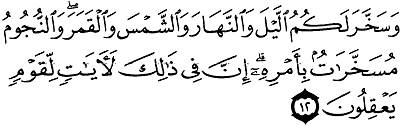 وَسَخَّرَ لَكُمُ ٱلَّيْلَ وَٱلنَّهَارَ وَٱلشَّمْسَ وَٱلْقَمَرَۖ وَٱلنُّجُومُ
مُسَخَّرَٰتُۢ بِأَمْرِهِۦٓۗ إِنَّ فِى ذَٰلِكَ لَأٓيَٰتٍ لِّقَوْمٍ
يَعْقِلُونَ ١٢